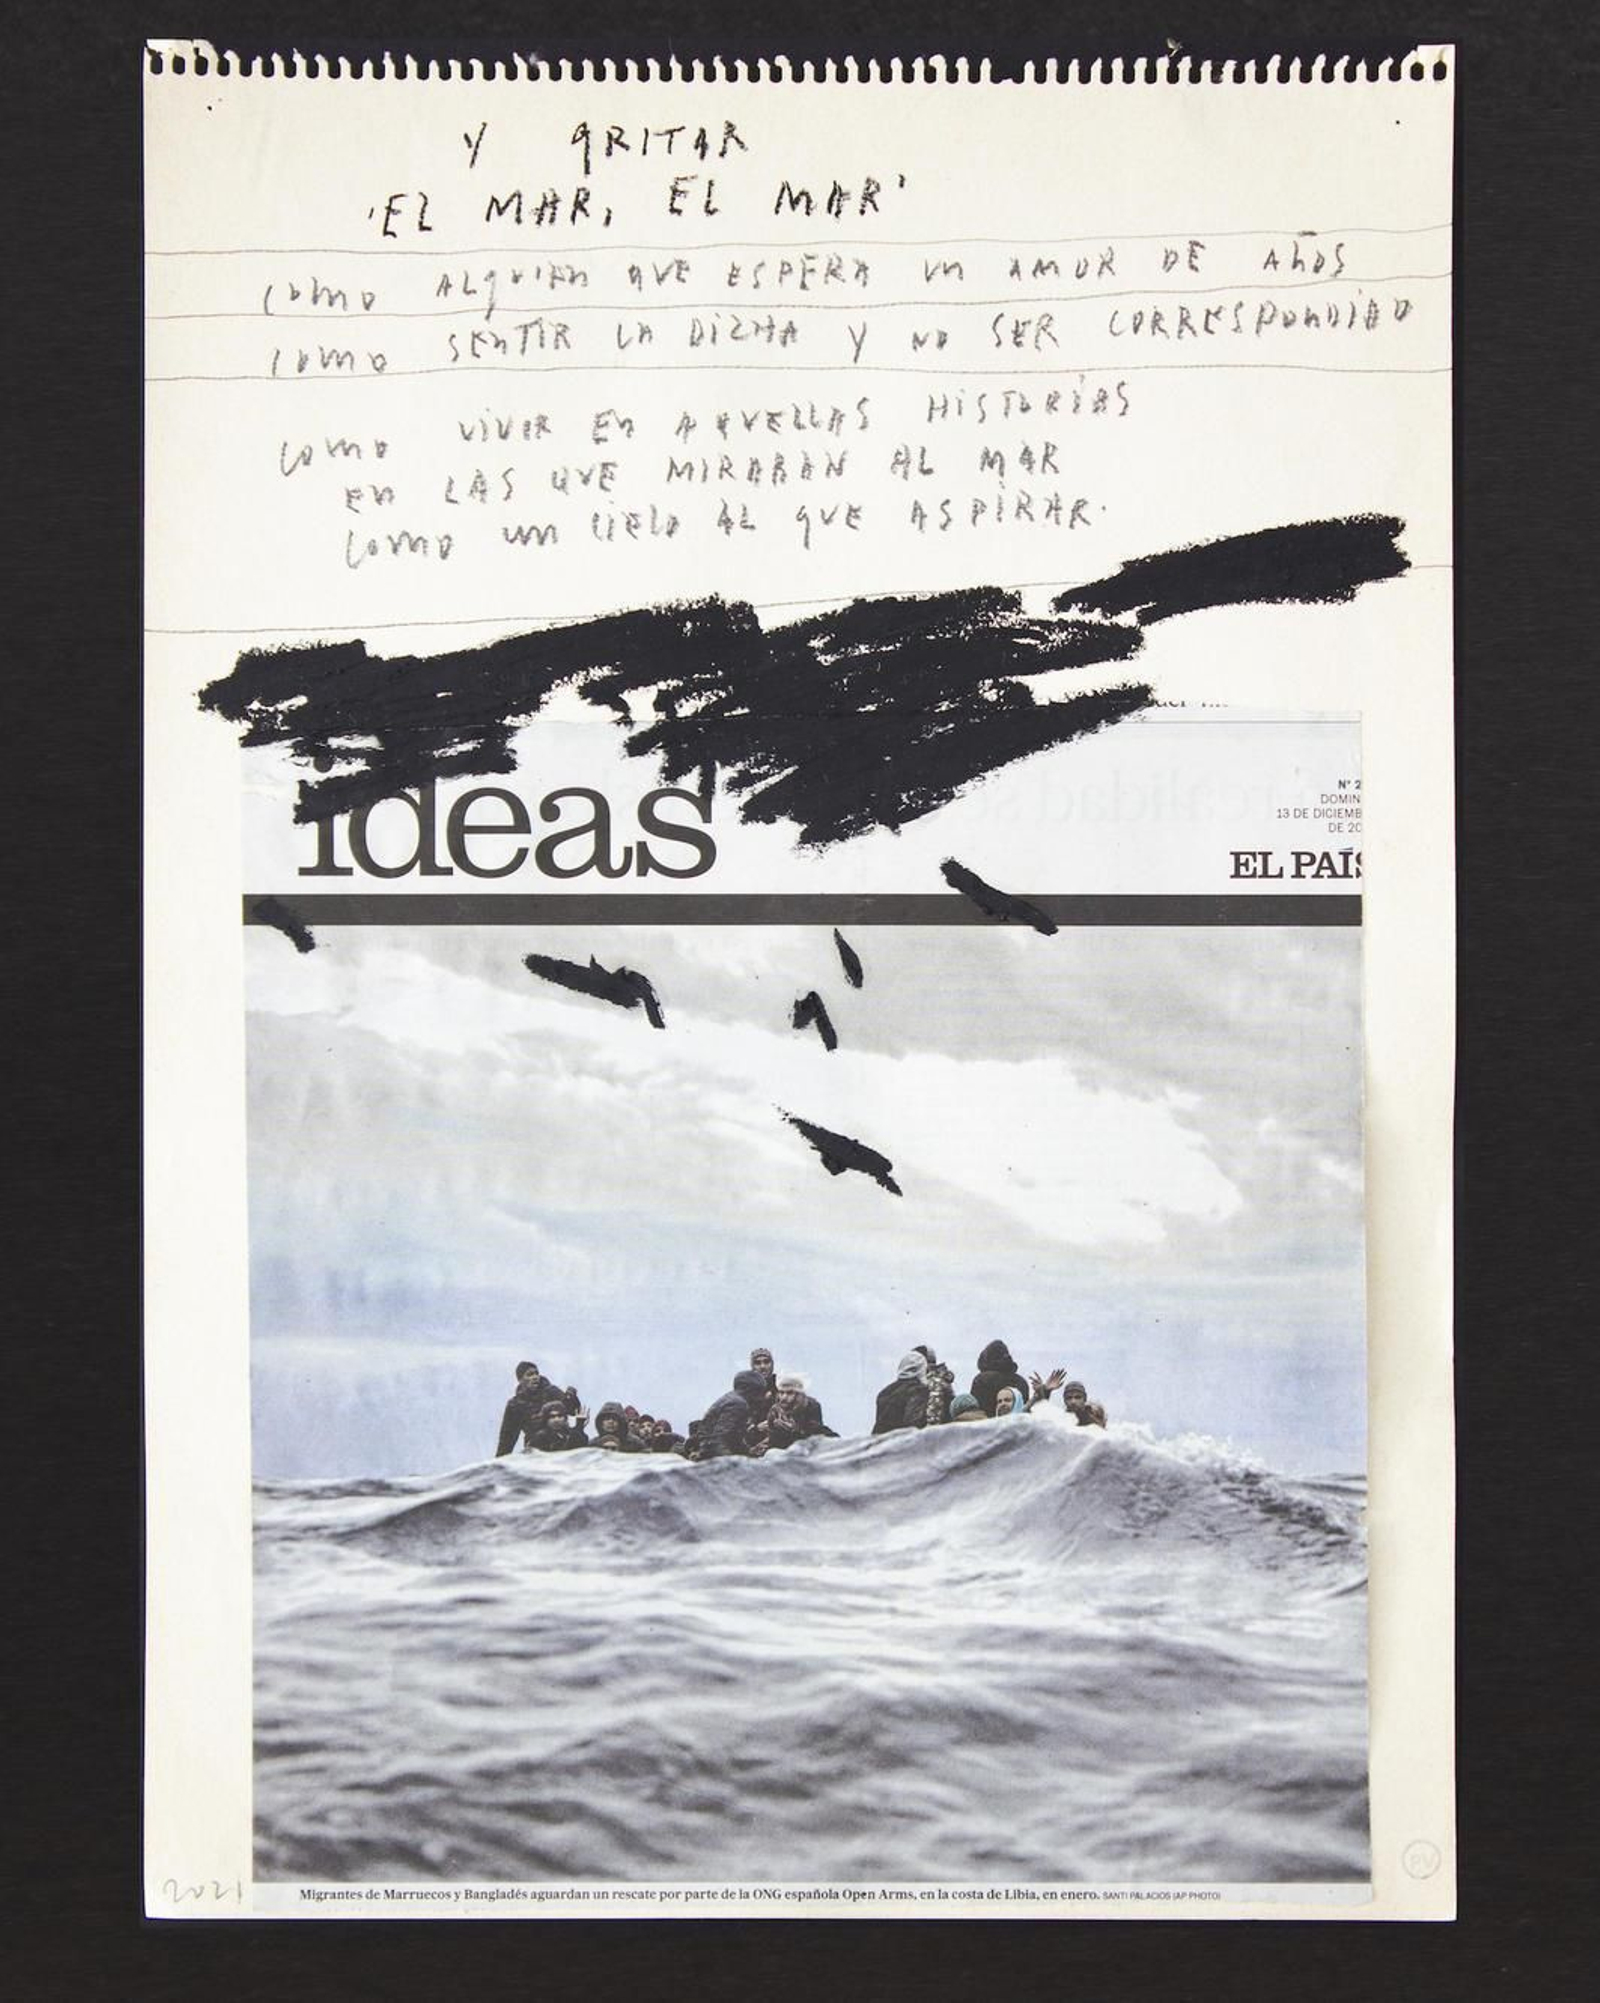 Y GRITAR
'EL MAR, EL MAR'
COMO ALGUIEN QUE ESPERA UN AMOR DE AÑOS
COMO SENTIR LA DICHA Y NO SER CORRESPONDIDO
COMO VIVIR EN AQUELLAS HISTORIAS
EN LAS QUE MIRABAN AL MAR
COMO UN CIELO AL QUE ASPIRAR.
ideas
Nº 2
DOMIN
13 DE DICIEMB
DE 20
EL PAÍS
Migrantes de Marruecos y Bangladés aguardan un rescate por parte de la ONG española Open Arms, en la costa de Libia, en enero. SANTI PALACIOS (AP PHOTO)
2021
PV